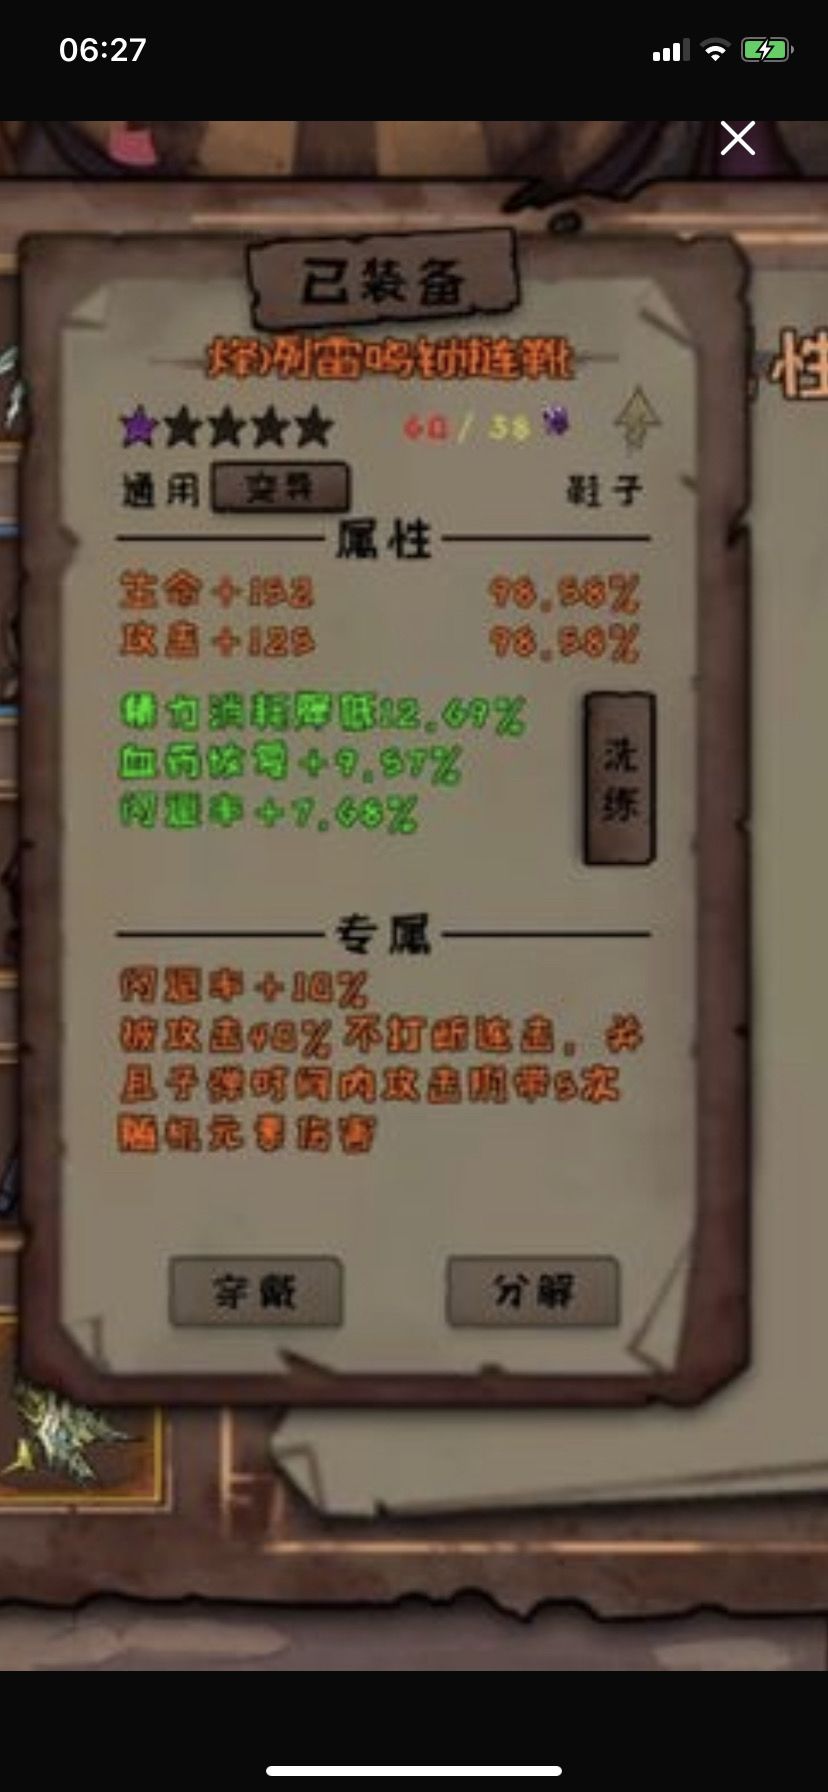 06:27
已装备
性
雷鸣锁链靴
60/38
通用 变异 鞋子
属性
生命+152 98.58%
攻击+125 98.58%
精力消耗降低12.69%
血药恢复+9.57%
闪避率+7.68%
洗练
专属
闪避率+10%
被攻击40%不打断连击，并
且子弹时间内攻击附带5次
随机元素伤害
穿戴 分解